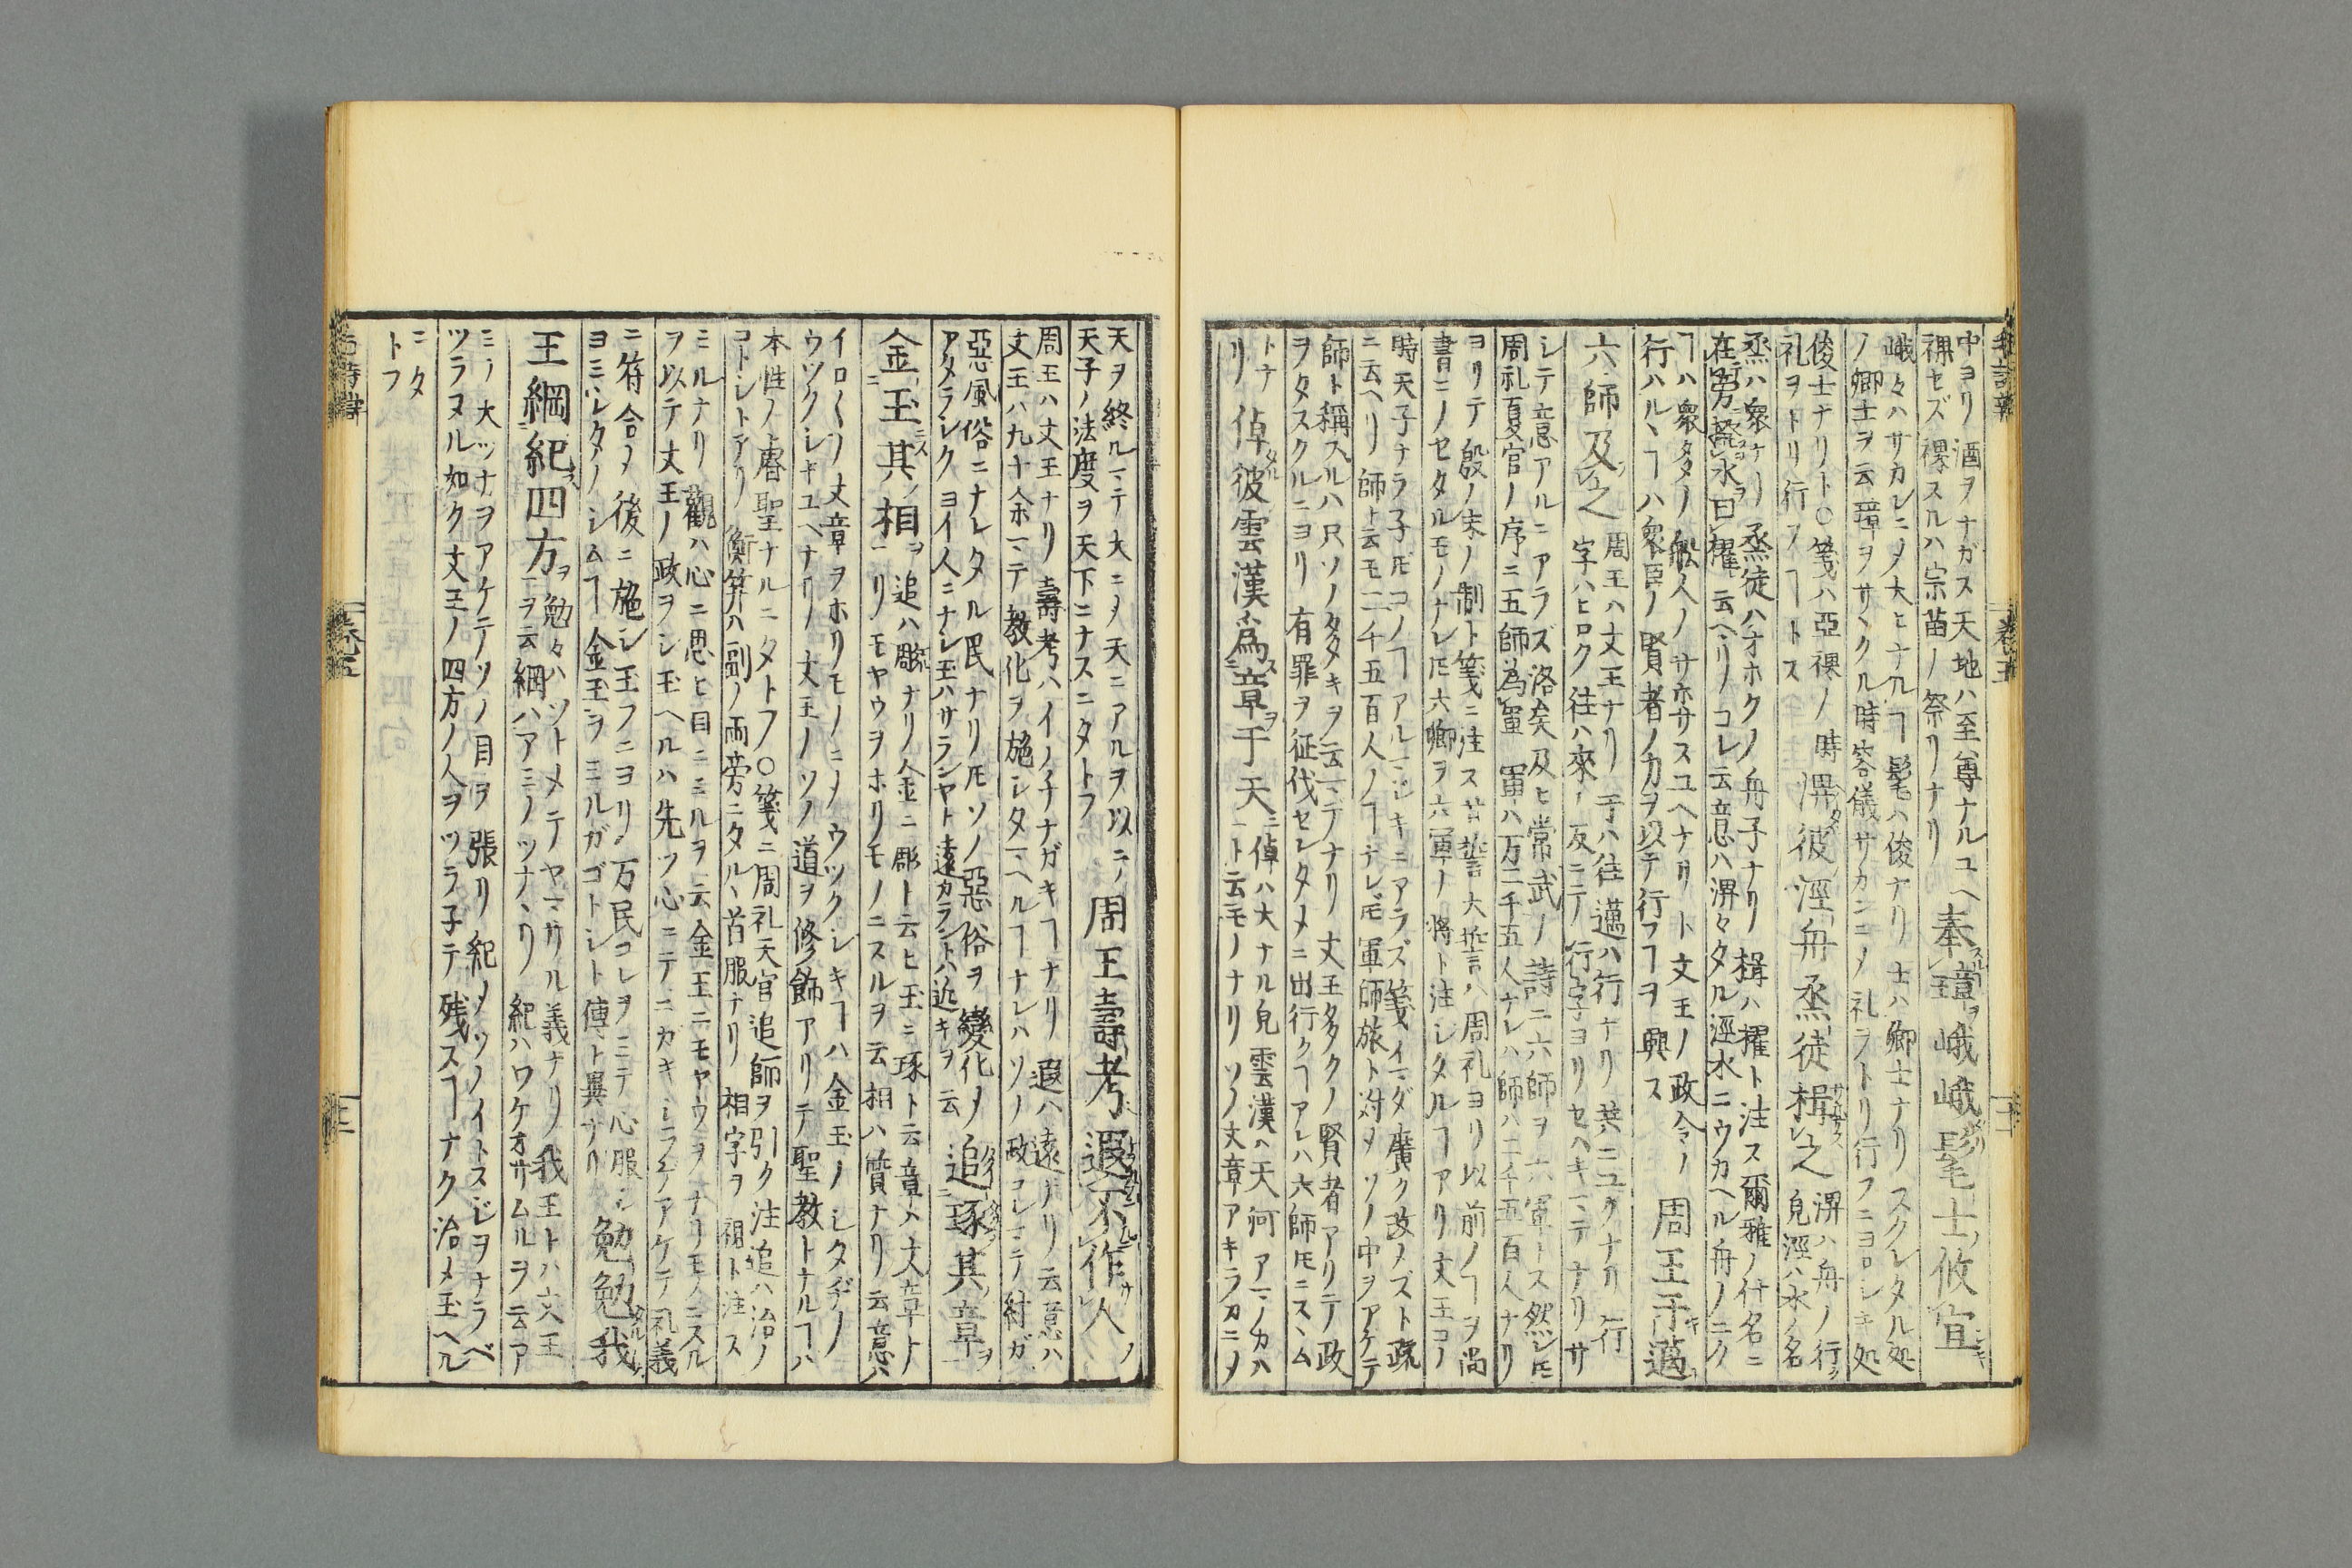 中ヨリ酒ヲナガス天地ハ至尊ナルユヘ
裸セズ裸スルハ宗苗ノ祭リナリ
奉璋峨峨髦士攸宜
峨々ハサカンニ〆大ヒナルヿ髦ハ俊ナリ士ハ卿士ナリスクレタル処
ノ卿士ヲ云璋ヲサヽクル時容儀サカンニ〆礼ヲトリ行フニヨロシキ処
俊士ナリト○箋ハ亞裸ノ時
礼ヲトリ行フヿトス
淠彼涇舟烝徒楫之
淠ハ舟ノ行ク
皃涇ハ水ノ名
烝ハ衆ナリ烝徒ハオホクノ舟子ナリ楫ハ櫂ト注ス爾雅ノ什名ニ
在旁撥水曰櫂云ヘリコレ云意ハ淠々タル涇水ニウカヘル舟ノニク
ヿハ衆多ノ船人ノサホサスユヘナリト文王ノ政令ノ
行ハルヽヿハ衆臣ノ賢者ノ力ヲ以テ行フヿヲ興ス
周王于邁
六師及之
周王ハ文王ナリ于ハ往邁ハ行ナリ共ニユクナリ行
字ハヒロク往ハ來ノ反ニテ行字ヨリセハキニテナリサ
シテ意アルニアラズ洛矣及ヒ常武ノ詩ニ六師ヲ六軍トス然レ𪜈
周礼夏官ノ序ニ五師為軍軍ハ万二千五人ナレハ師ハ二千五百人ナリ
ヨリテ殷ノ末ノ制ト箋ニ注ス甘誓大誓ハ周礼ヨリ以前ノヿヲ尚
書ニノセタルモノナレ𪜈六卿ヲ六軍ノ将ト注シタルヿアリ文王コノ
時天子ナラ子𪜈コノヿアルマジキニアラズ箋イマダ廣ク改メズト疏
ニ云ヘリ師ト云モ二千五百人ノヿナレ𪜈軍師旅ト対〆ソノ中ヲアケテ
師ト稱スルハ只ソノ多キヲ云マデナリ文王多クノ賢者アリテ政
ヲタスクルニヨリ有罪ヲ征伐セシタメニ出行クヿアレハ六師𪜈ニスヽム
トナ
リ
倬彼雲漢為章于天
倬ハ大ナル皃雲漢ハ天河アマノカハ
ト云モノナリソノ文章アキラカニ〆
天ヲ終ルマテ大ニ〆天ニアルヲ以テ
天子ノ法度ヲ天下ニナスニタトフ
周王壽考遐不作人
周王ハ文王ナリ壽考ハイノチナガキヿナリ遐ハ遠ナリ云意ハ
文王ハ九十余マテ教化ヲ施シタマヘルヿナレハソノ政コレマテ紂ガ
惡風俗ニナレタル民ナリ𪜈ソノ惡俗ヲ變化〆
アタラシクヨイ人ニナシ玉ハサランヤト遠カラントハ近キヲ云
追琢其章
金玉其相
追ハ彫ナリ金ニ彫ト云ヒ玉ニ琢ト云章ハ文章ト
リモヤウヲホリモノニスルヲ云相ハ質ナリ云意ハ
イロ〱ノ文章ヲホリモノニ〆ウツクシキヿハ金玉ノシタヂノ
ウツクシキユヘナリ文王ノソノ道ヲ修飾アリテ聖教トナルヿハ
本性ノ睿聖ナルニタトフ○箋ニ周礼天官追師ヲ引ク注追ハ治ノ
コトシトアリ衡笄ハ副ノ両旁ニタルヽ首服ナリ相字ヲ視ト注ス
ミルナリ觀ハ心ニ思ヒ目ニミルヲ云金玉ニモヤウヲナリモノニスル
ヲ以テ文王ノ政ヲシ玉ヘルハ先ツ心ニテニガキシラケアケテ礼義
ニ符合〆後ニ施シ玉フニヨリ万民コレヲミテ心服シ
ヨミシタノシムヿ金玉ヲミルガゴトシト傳ト異ナリ
勉勉我
王綱紀四方
勉々ハツトメテヤマサル義ナリ我王トハ文王
ヲ云綱ハアミノツナヽリ紀ハワケオサムルヲ云ア
ミノ大ツナヲアケテソノ目ヲ張リ紀〆ソノイトスジヲナラベ
ツラヌル如ク文王ノ四方ノ人ヲツラ子テ残スヿナク治メ玉ヘル
ニタ
トフ